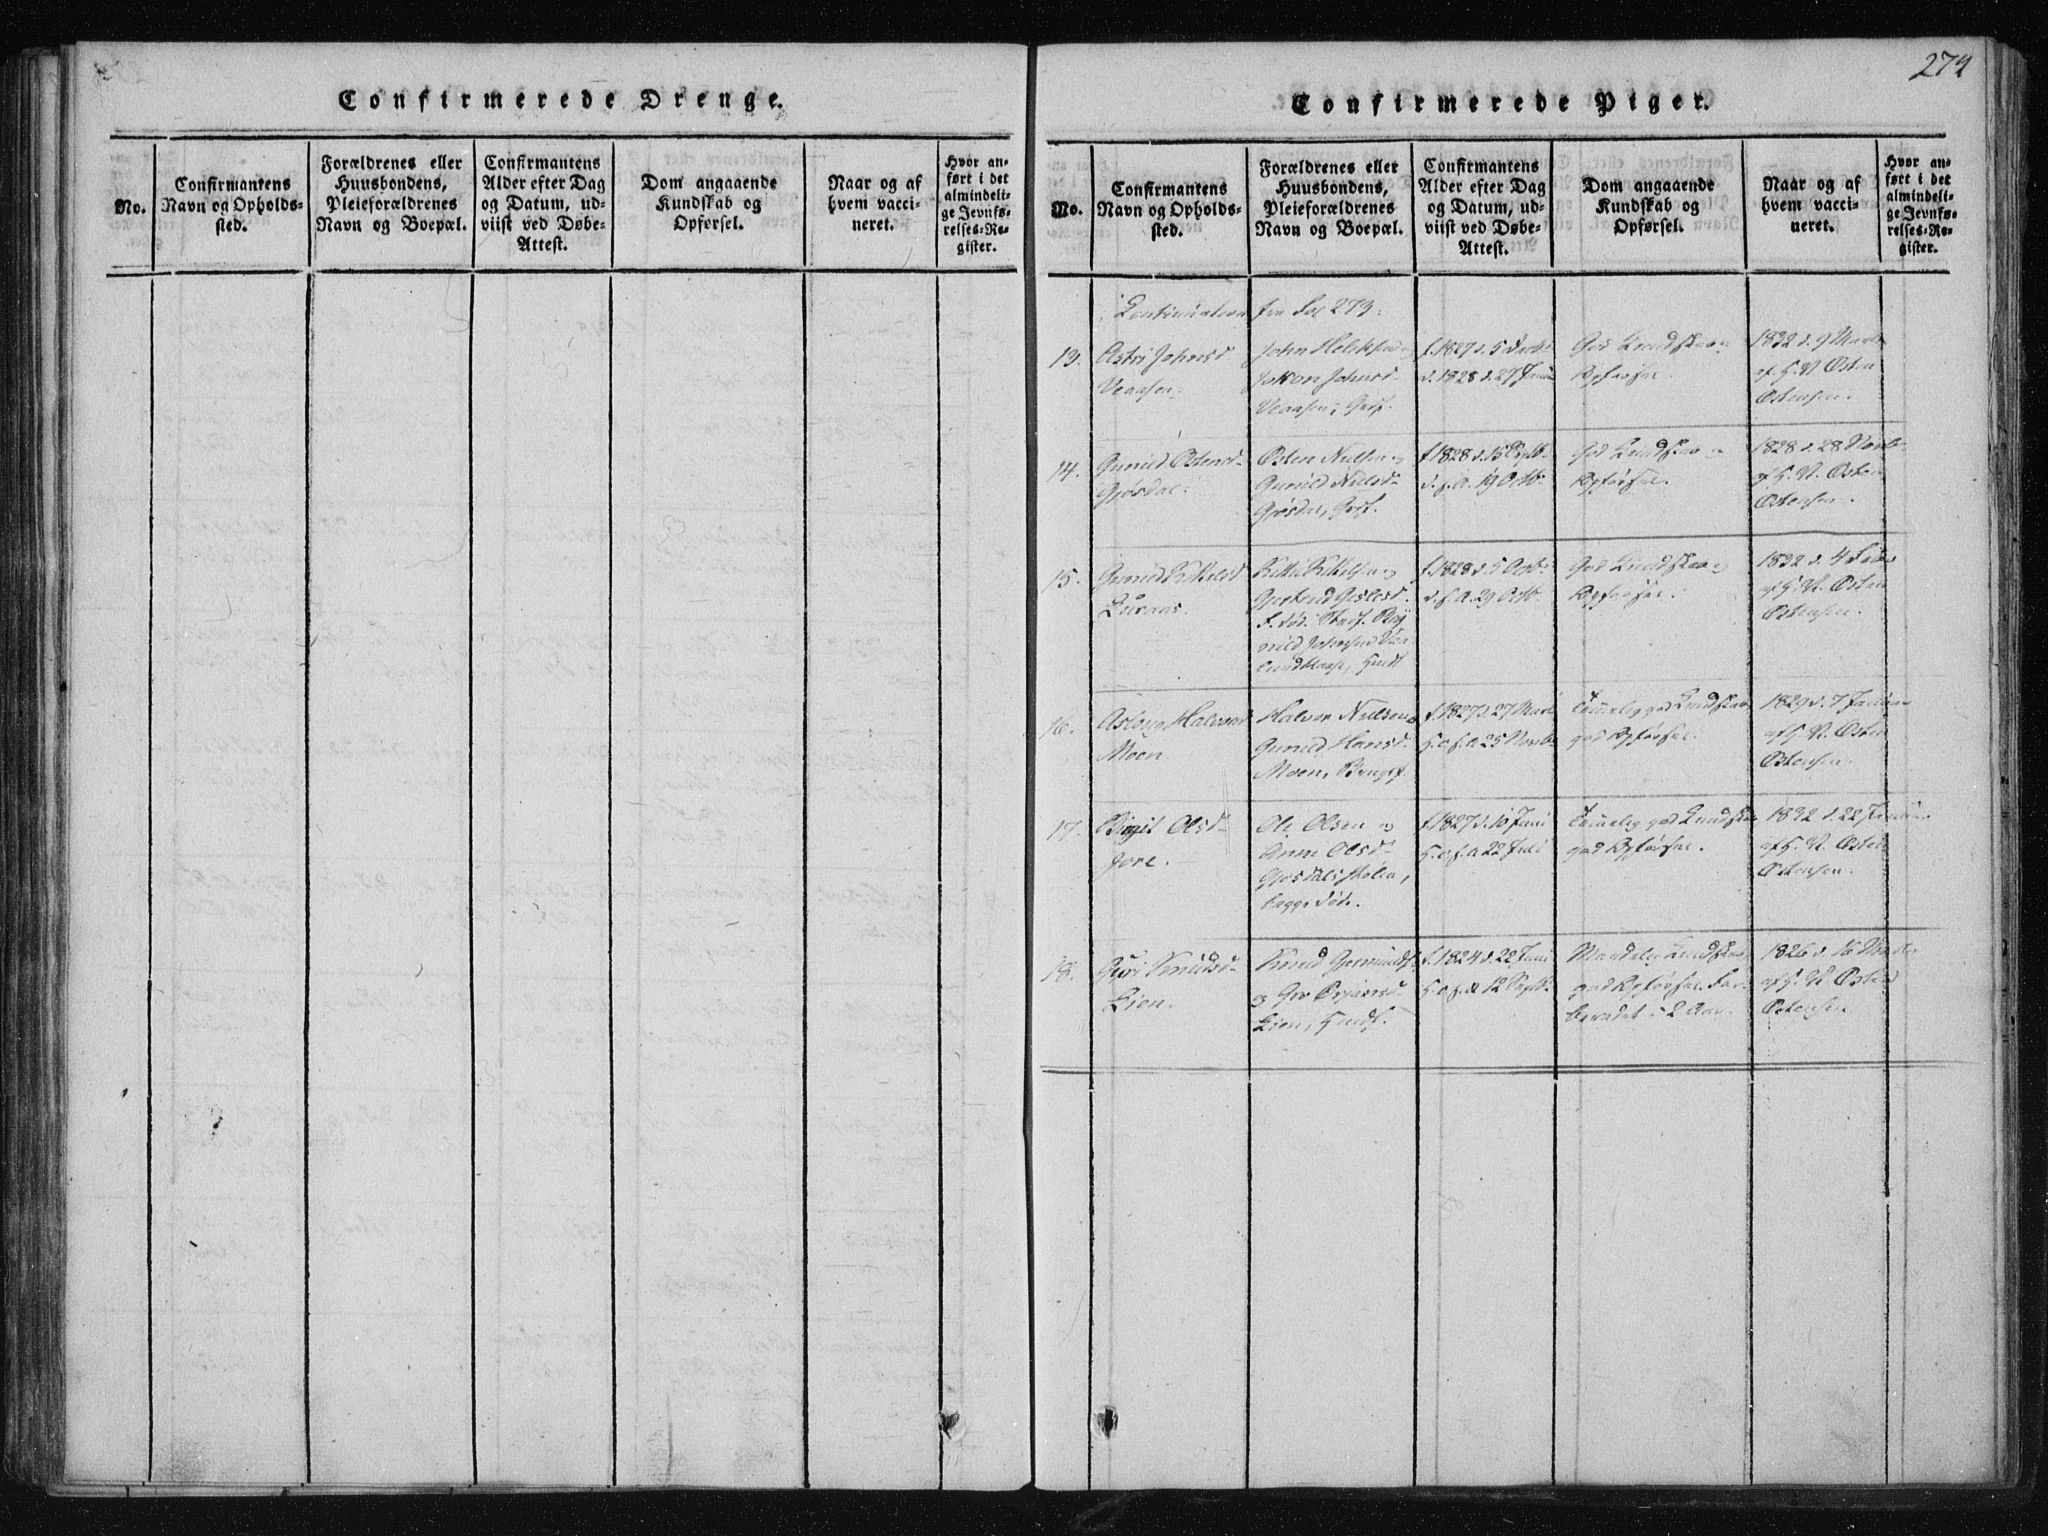 Confirmerede Drenge.
No.
Confirmantens
Navn og Opholds-
sted.
Forældrenes eller
Huusbondens,
Pleieforældrenes
Navn og Boepæl.
Confirmantens
Alder efter Dag
og Datum, ud-
viist ved Døbe-
Attest.
Dom angaaende
Kundskab og
Opførsel.
Naar og af
hvem vacci-
neret.
Hvor an-
ført i det
almindeli-
ge Jevnfø-
relses-Re-
gister.
274
Confirmerede Piger.
No.
Confirmantens
Navn og Opholds-
sted.
Forældrenes eller
Huusbondens,
Pleieforældrenes
Navn og Boepæl.
Confirmantens
Alder efter Dag
og Datum, ud-
viist ved Døbe-
Attest.
Dom angaaende
Kundskab og
Opførsel.
Naar og af
hvem vacci-
neret.
Hvor an-
ført i det
almindeli-
ge Jevnfø-
relses-Re-
gister.
Continuation fra Fol 273.
13.
Astri Johnsd
Vaaen.
John
Johnsd
f. 1827 d. 5
d. 1828 d. 27
God Kundskab og
Opførsel.
1832 d. 9
af H. N. Østen
Østensen.
14.
Gunild Østensd
Gjøsdal.
Østen Nielsen og
Gunild Nielsd
Gjøsdal,
f. 1828 d. 15 Septb
d. s. A. 19 Octb
God Kundskab og
Opførsel.
1828 d. 28 Novb
af H. N. Østen
Østensen.
15.
Gunild Kittelsd
Luraas.
Kittil Kittelsen og
f. 1828 d. 5
d. s. A. 29 Octb
God Kundskab og
Opførsel.
1832 d. 4
af H. N. Østen
Østensen.
16.
Aslaug Halvorsd
Moen
Halvor Nielsen og
Gunild Hansd
Moen,
f. 1827 d. 27
H. o. s. A. 25 Novb
Temmelig god Kundskab,
god Opførsel.
1829 d. 7 Januar
af H. N. Østen
Østensen.
17.
Birgit Olsd
Jore.
Ole Olsen og
Anne Olsd
begge døde.
f. 1827 d. 10 Juni
H. o. s. A. 22 Juli
Temmelig god Kundskab
god Opførsel.
1832 d. 22
af H. N. Østen
Østensen.
18.
Guri Knudsd
Lien.
Knud Germunds
og Gro
Lien,
f. 1824 d. 22 Juni
H. o. s. A. 12 Septb
Maadelig Kundskab
god Opførsel. For-
beredet i 2 Aar.
1826 d. 16
af H. N. Østen
Østensen